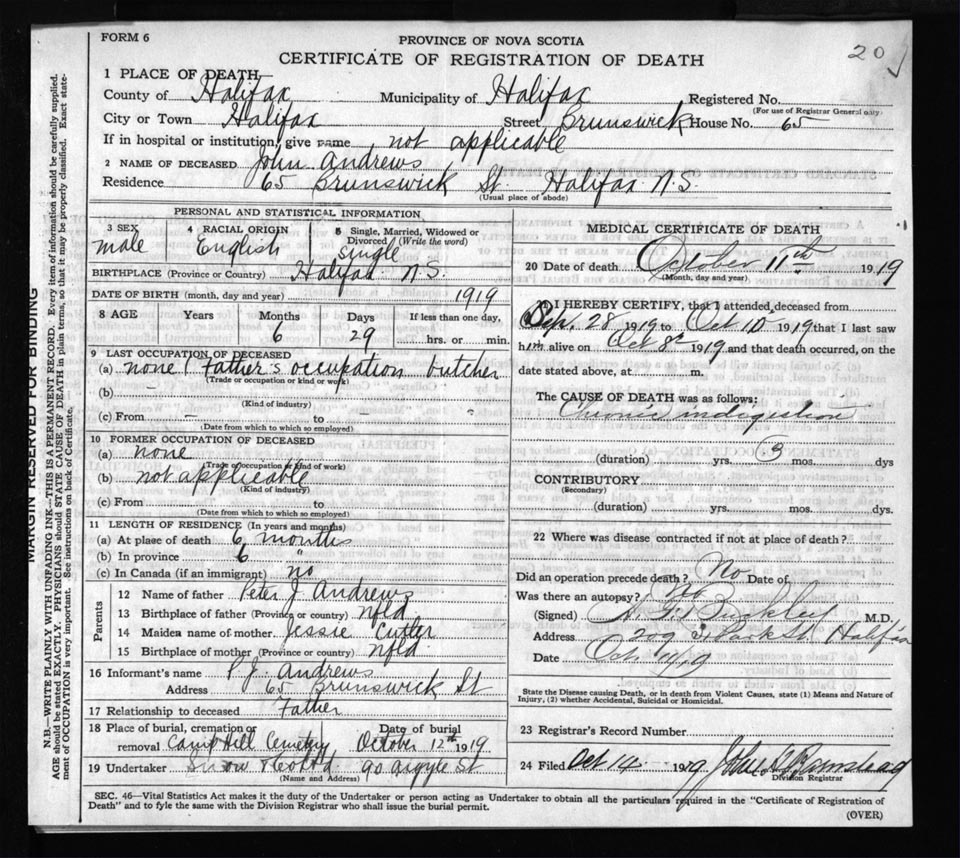 FORM 6
PROVINCE OF NOVA SCOTIA
CERTIFICATE OF REGISTRATION OF DEATH
20
1 PLACE OF DEATH—
County of Halifax Municipality of Halifax Registered No.
(For use of Registrar General only)
City or Town Halifax Street Brunswick House No. 65
If in hospital or institution, give name not applicable
2 NAME OF DECEASED John Andrews
Residence 65 Brunswick St. Halifax N.S.
(Usual place of abode)
PERSONAL AND STATISTICAL INFORMATION
3 SEX 4 RACIAL ORIGIN 5 Single, Married, Widowed or Divorced (Write the word)
male English Single
BIRTHPLACE (Province or Country) Halifax N.S.
DATE OF BIRTH (month, day and year) 1919
8 AGE Years Months Days If less than one day,
6 29 hrs. or min.
9 LAST OCCUPATION OF DECEASED
(a) none (Father's occupation butcher
(Trade or occupation or kind or work)
(b) —
(Kind of industry)
(c) From — to —
(Date from which to which so employed)
10 FORMER OCCUPATION OF DECEASED
(a) none
(Trade or occupation or kind of work)
(b) not applicable
(Kind of industry)
(c) From to
(Date from which to which so employed)
11 LENGTH OF RESIDENCE (In years and months)
(a) At place of death 6 months
(b) In province 6 "
(c) In Canada (if an immigrant) no
Parents
12 Name of father Peter J Andrews
13 Birthplace of father (Province or country) Nfld
14 Maiden name of mother Jessie Cutler
15 Birthplace of mother (Province or country) Nfld.
16 Informant's name P.J. Andrews
Address 65 Brunswick St
17 Relationship to deceased Father
18 Place of burial, cremation or removal Camp Hill Cemetery Date of burial October 12th 1919
19 Undertaker Snow & Co Ltd. 90 Argyle St
(Name and Address)
MEDICAL CERTIFICATE OF DEATH
20 Date of death October 11th 1919
(Month, day and year)
I HEREBY CERTIFY, that I attended deceased from
Sep. 28 1919 to Oct 10 1919 that I last saw
him alive on Oct 8th 1919 and that death occurred, on the
date stated above, at m.
The CAUSE OF DEATH was as follows:
Chronic indigestion
(duration) yrs. 3 mos. dys
CONTRIBUTORY
(Secondary)
(duration) yrs. mos. dys.
22 Where was disease contracted if not at place of death?
Did an operation precede death? No Date of
Was there an autopsy? no
(Signed) M.D.
Address 209 Park St. Halifax
Date Oct
State the Disease causing Death, or in death from Violent Causes, state (1) Means and Nature of
Injury, (2) whether Accidental, Suicidal or Homicidal.
23 Registrar's Record Number
24 Filed Oct 14 1919
Division Registrar
SEC. 46—Vital Statistics Act makes it the duty of the Undertaker or person acting as Undertaker to obtain all the particulars required in the "Certificate of Registration of
Death" and to fyle the same with the Division Registrar who shall issue the burial permit.
(OVER)
MARGIN RESERVED FOR BINDING
N.B.—WRITE PLAINLY WITH UNFADING INK—THIS IS A PERMANENT RECORD. Every item of information should be carefully supplied.
AGE should be stated EXACTLY. PHYSICIANS should STATE CAUSE OF DEATH in plain terms, so that it may be properly classified. Exact state-
ment of OCCUPATION is very important. See instructions on back of Certificate.